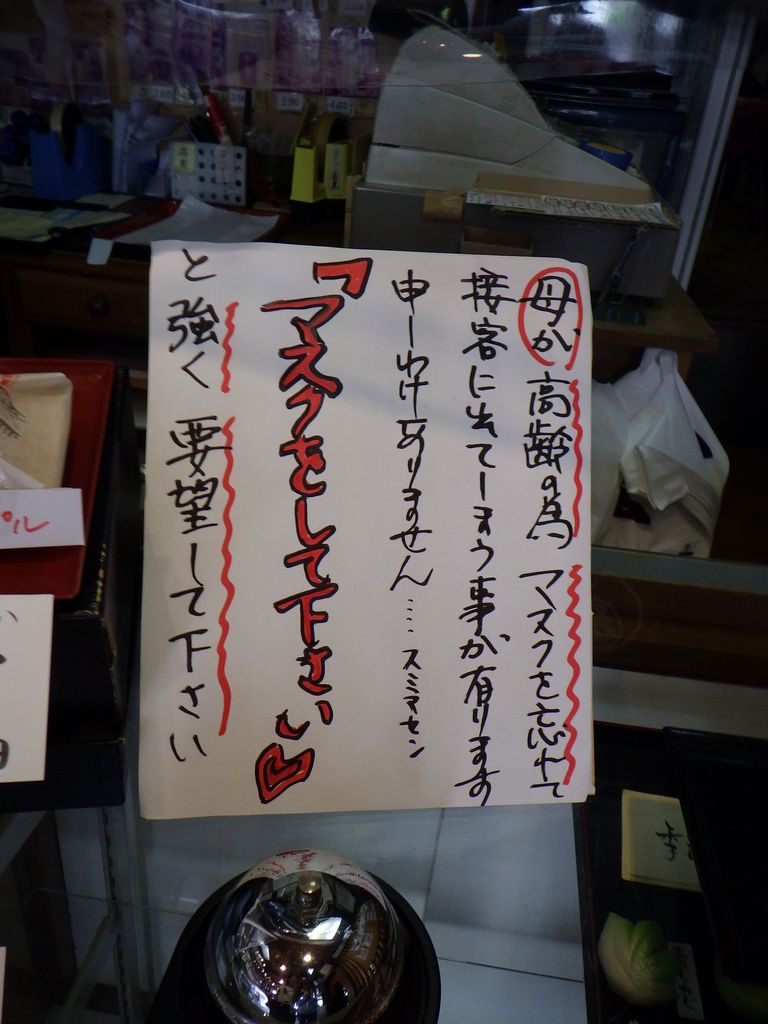 母が 高齢の為 マスクを忘れて
接客に出てしまう事が有ります
申しわけありません…… スミマセン
「マスクをして下さい」
と 強く 要望して下さい